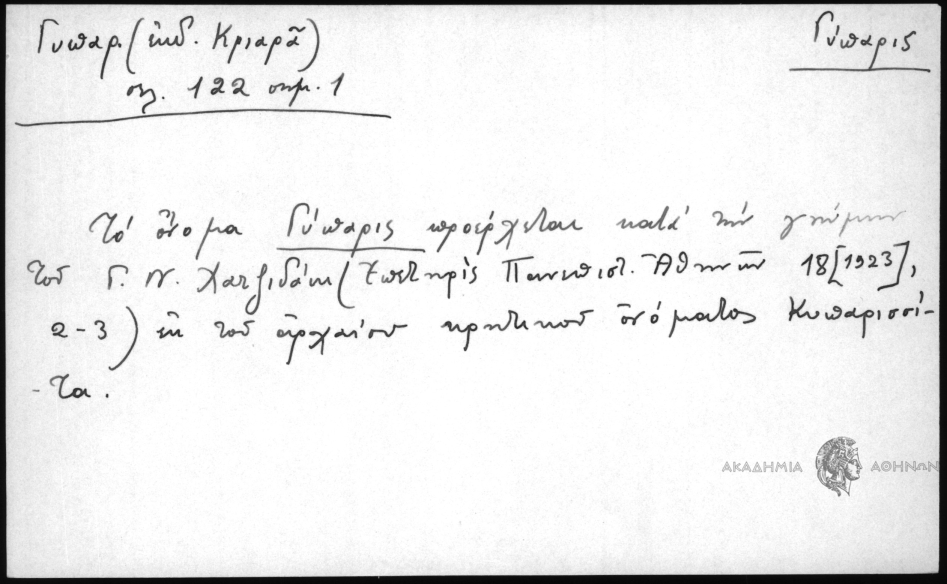 Γυπαρ. (ἐκδ. Κριαρᾶ)
σελ. 122 σημ. 1
Γύπαρις
Τό ὄνομα Γύπαρις προέρχεται κατά τήν γνώμην
τοῦ Γ. Ν. Χατζιδάκη (Ἐπετηρὶς Πανεπιστ. Ἀθηνῶν 18 [1923],
2-3) ἐκ τοῦ ἀρχαίου κρητικοῦ ὀνόματος Κυπαρισσί-
-τα.
ΑΚΑΔΗΜΙΑ ΑΘΗΝΩΝ